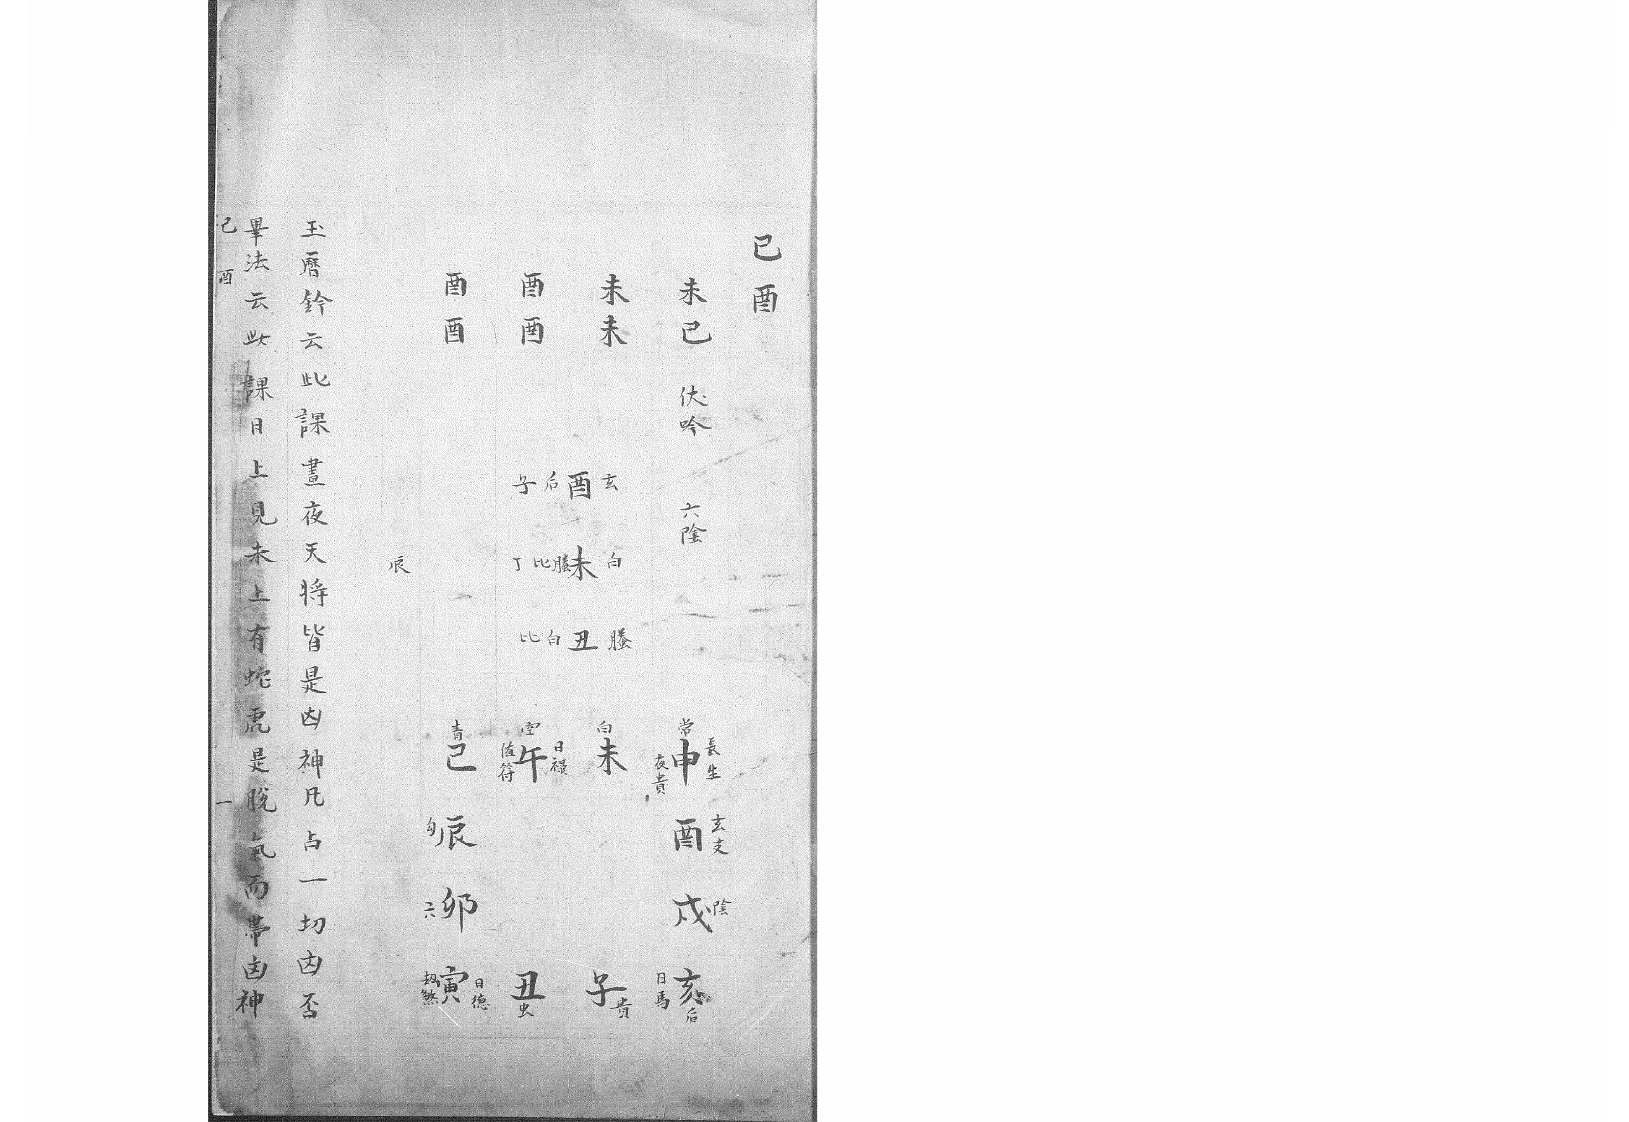 己酉
未己 伏吟 六陰
未未
酉酉
酉酉
玄酉后子
白未螣比丁
螣丑白比
辰
常申長生夜貴
白未
空午日祿值符
青巳
酉玄支
勾辰
戌陰
六卯
亥后日馬
子貴
丑虫
寅日德劫煞
玉曆鈐云此課晝夜天將皆是凶神凡占一切凶否
畢法云此課日上見未上有蛇虎是脫氣而帶凶神
己酉 一